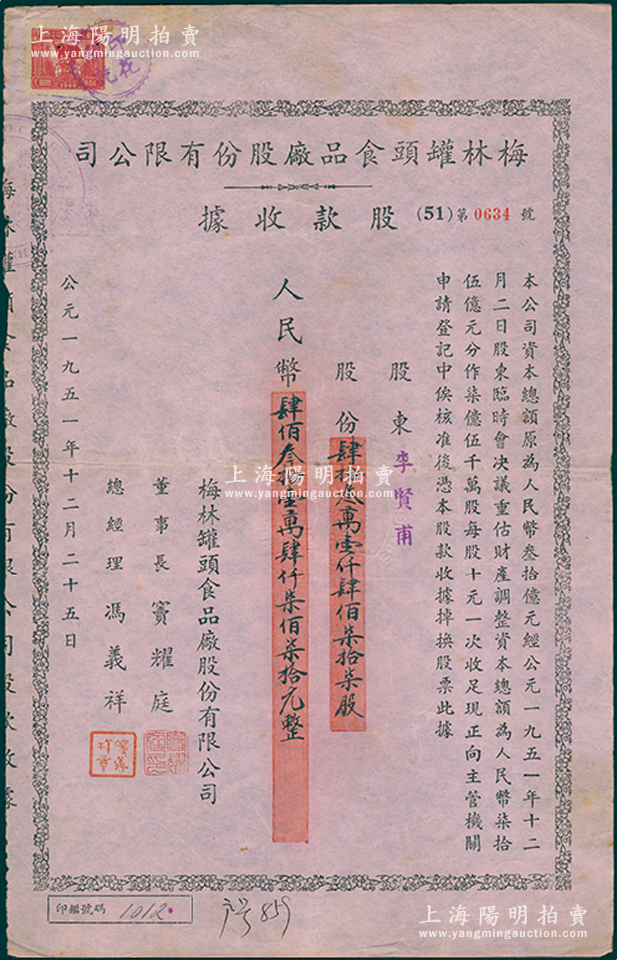 上海陽明拍賣
www.yangmingauction.com
1949
梅林罐頭食品廠股份有限公司
股款收據
(51)第0634號
本公司資本總額原為人民幣叁拾億元經公元一九五一年十二
月二日股東臨時會決議重估財產調整資本總額為人民幣柒拾
伍億元分作柒億伍千萬股每股十元一次收足現正向主管機關
申請登記中俟核准後憑本股款收據掉換股票此據
股東李賢甫
股份肆拾叁萬壹仟肆佰柒拾柒股
人民幣肆佰叁拾壹萬肆仟柒佰柒拾元整
梅林罐頭食品廠股份有限公司
董事長 竇耀庭
總經理 馮義祥
公元一九五一年十二月二十五日
梅林罐頭食品廠股份有限公司股款收據
上海陽明拍賣
www.yangmingauction.com
印鑑號碼 1012
859
上海陽明拍賣
www.yangmingauction.com